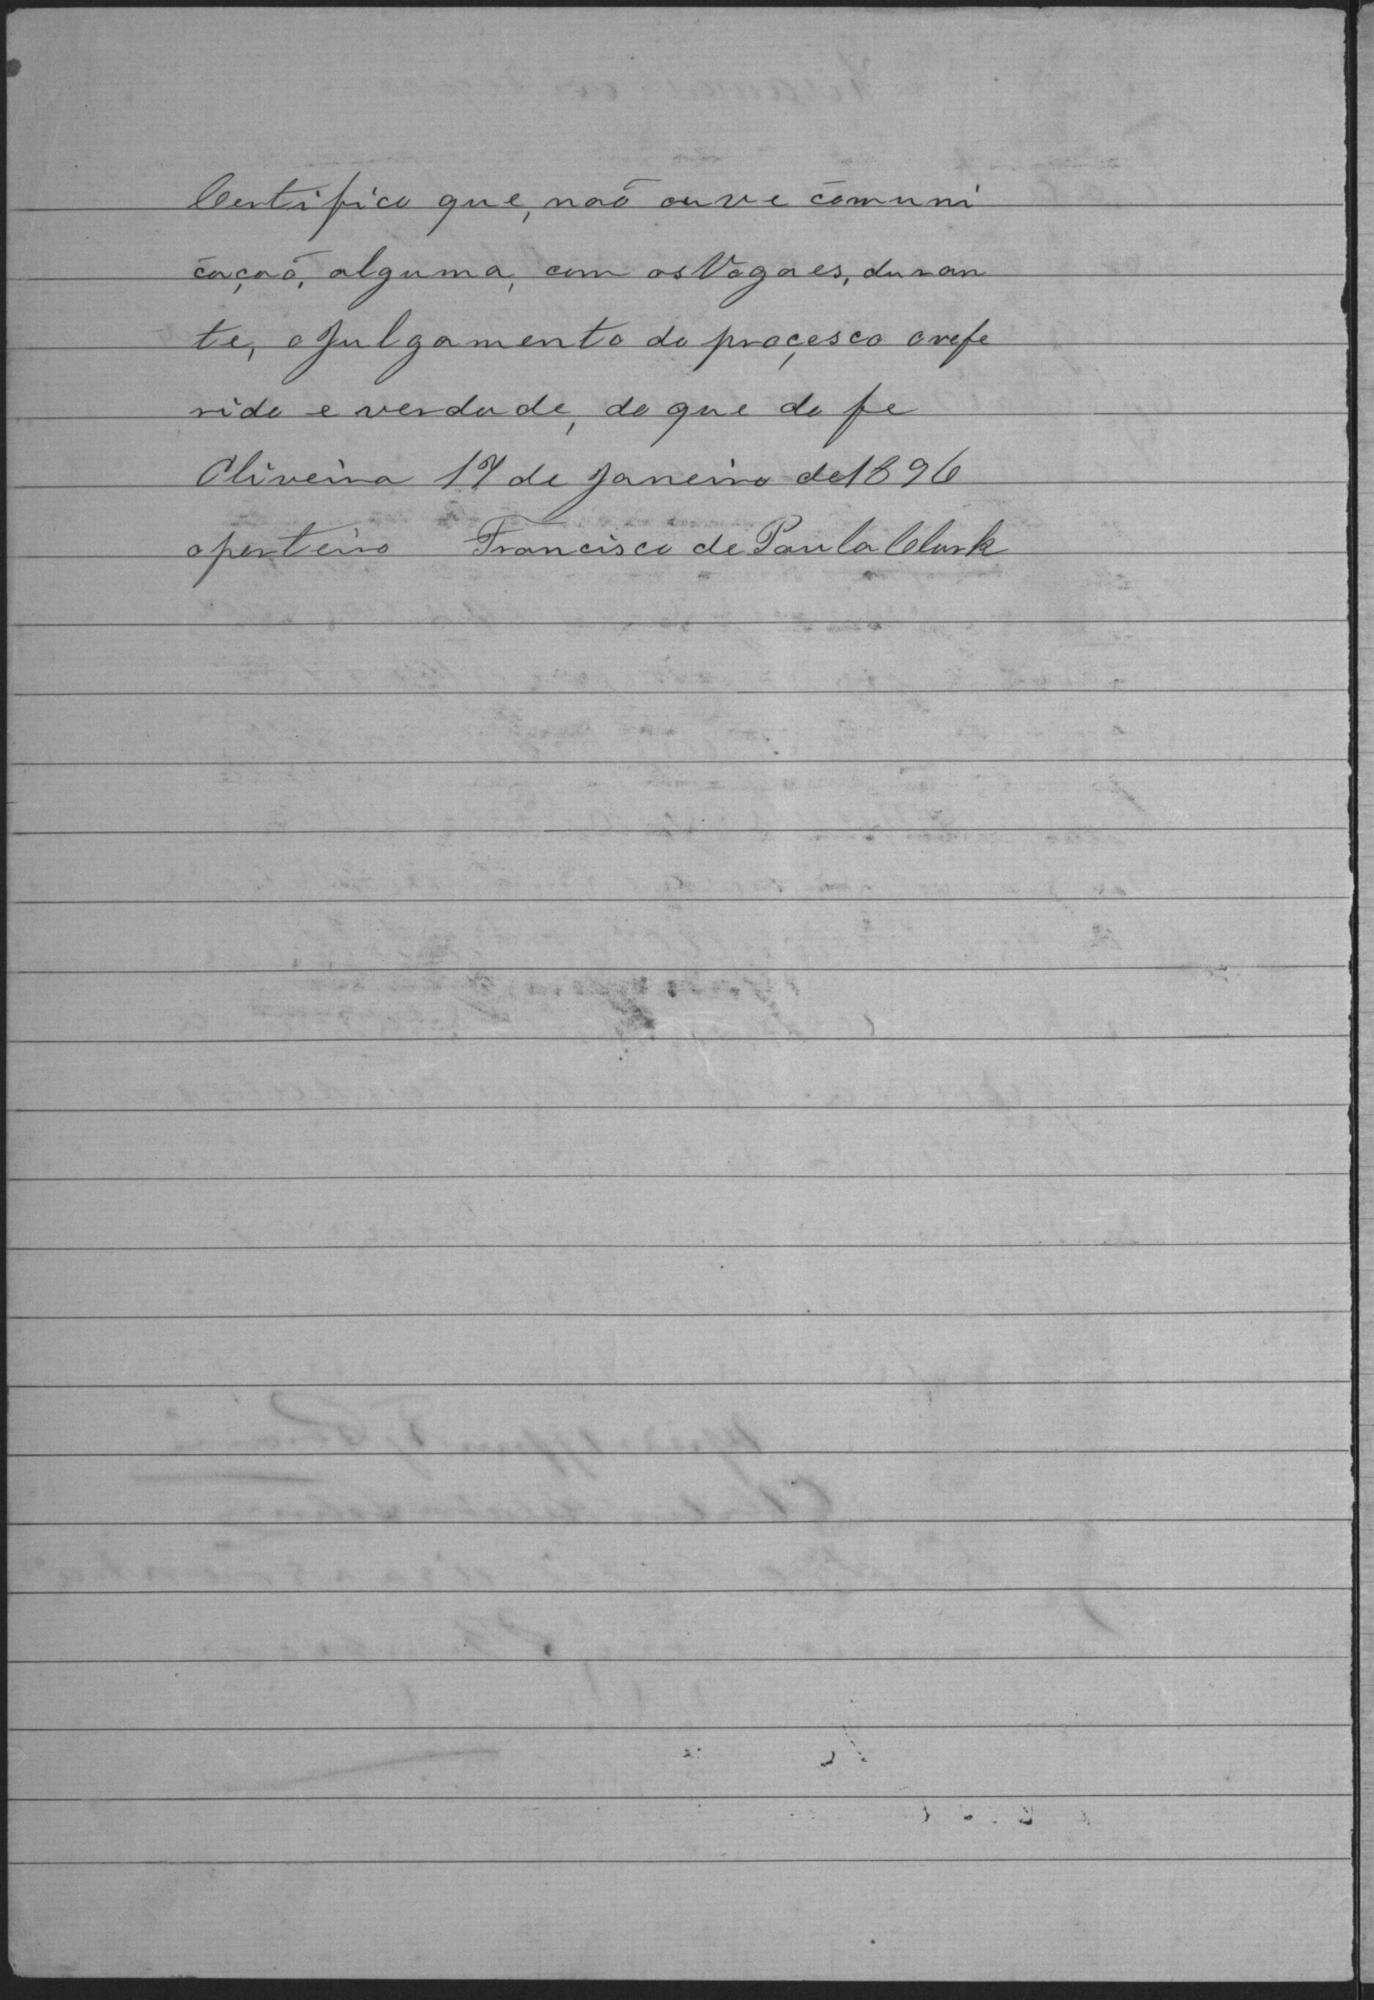 Certifico que, naõ ouve comuni
caçaõ, alguma, com os Vogaes, duran
te, o Julgamento do proçesco o refe
rido e verdade, do que do fe
Oliveira 17 de Janeiro de 1896
o porteiro Francisco de Paula Clark